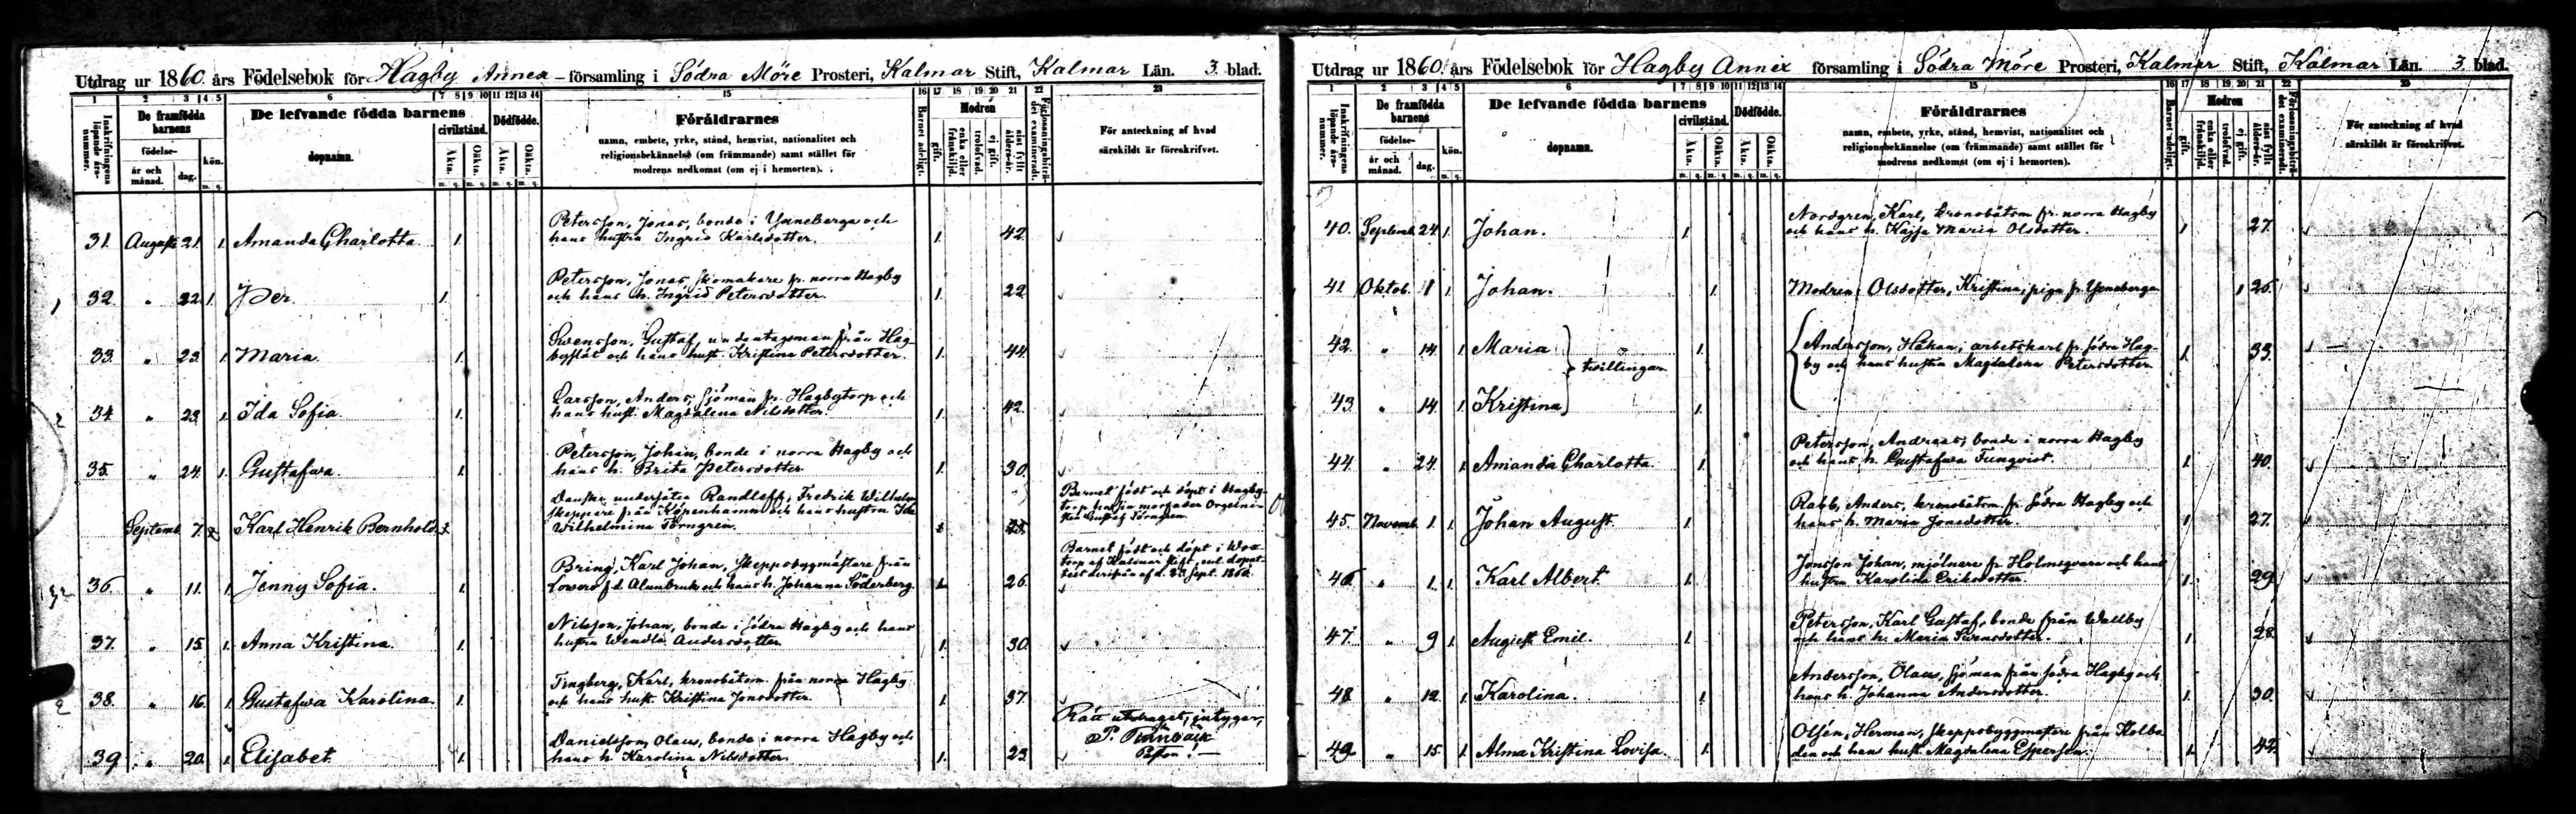 Utdrag ur 1860 års Födelsebok för Hagby Annex-församling i Södra Möre Prosteri, Kalmar Stift, Kalmar Län. 3. blad.
1 2 3 4 5 6 7 8 9 10 11 12 13 14 15 16 17 18 19 20 21 22 23
Inskrifningens löpande års-nummer.
De framfödda barnens
födelse-
år och månad.
dag.
kön.
m. q.
De lefvande födda barnens
dopnamn.
civilstånd.
Äkta. Oäkta.
m. q. m. q.
Dödfödde.
Äkta. Oäkta.
m. q. m. q.
Föräldrarnes
namn, embete, yrke, stånd, hemvist, nationalitet och
religionsbekännelse (om främmande) samt stället för
modrens nedkomst (om ej i hemorten).
Barnet adeligt.
Modren
gift.
enka eller frånskiljd.
trolofvad.
ej gift.
sist fyllt ålders-år.
Förlossningsbiträdet examineradt.
För anteckning af hvad
särskildt är föreskrifvet.
Petersson, Jonas, bonde i Ynneberga och
31. Augusti 21. 1. Amanda Charlotta 1. hans hustru Ingrid Karlsdotter. 1. 42.
Petersson, Jonas, skomakare fr. norra Hagby
32. " 22. 1. Per. 1. och hans h. Ingrid Petersdotter. 1. 22.
Swensson, Gustaf, undantagsman från Hag-
33. " 23. 1. Maria. 1. byslät och hans hust. Kristina Petersdotter. 1. 44.
Larsson, Anders, sjöman fr. Hagbytorp och
34. " 23. 1. Ida Sofia. 1. hans hust. Magdalena Nilsdotter. 1. 42.
Petersson, Johan, bonde i norra Hagby och
35. " 24. 1. Gustafwa. 1. hans h. Brita Petersdotter 1. 30.
Danske undersåten Randleff, Fredrik Wilhelm
skeppare från Köpenhamn och hans hustru Ida
Septemb. 7. Karl Henrik Bernhold. Wilhelmina Törngren.
Barnet födt och döpt i Hagby-
torp hos sin morfader Orgelnis-
ten Gustaf Törngren.
Bring, Karl Johan, skeppsbygmästare från
36. " 11. 1. Jenny Sofia. 1. Lovers f.d. Alunbruk och hans h. Johanna Söderberg. 1. 26.
Barnet födt och döpt i Wox-
torp af Kalmar stift, enl. dopat-
test derifrån af d. 20 Sept. 1860.
Nilsson, Johan, bonde i södra Hagby och hans
37. " 15. 1. Anna Kristina. 1. hustru Wendla Andersdotter 1. 30.
Tingberg, Karl, kronobåtsm. från norra Hagby
38. " 16. 1. Gustafwa Karolina. 1. och hans hust. Kristina Jonsdotter. 1. 37.
Danielsson, Olaus, bonde i norra Hagby och
39. " 20. 1. Elisabet. 1. hans h. Karolina Nilsdotter. 1. 23.
Rätt utdraget, intygar,
Utdrag ur 1860. års Födelsebok för Hagby Annex församling i Södra Möre Prosteri, Kalmar Stift, Kalmar Län. 3. blad.
1 2 3 4 5 6 7 8 9 10 11 12 13 14 15 16 17 18 19 20 21 22 23
Inskrifningens löpande års-nummer.
De framfödda barnens
födelse-
år och månad.
dag.
kön.
m. q.
De lefvande födda barnens
dopnamn.
civilstånd.
Äkta. Oäkta.
m. q. m. q.
Dödfödde.
Äkta. Oäkta.
m. q. m. q.
Föräldrarnes
namn, embete, yrke, stånd, hemvist, nationalitet och
religionsbekännelse (om främmande) samt stället för
modrens nedkomst (om ej i hemorten).
Barnet adeligt.
Modren
gift.
enka eller frånskiljd.
trolofvad.
ej gift.
sist fyllt ålders-år.
Förlossningsbiträdet examineradt.
För anteckning af hvad
särskildt är föreskrifvet.
Nordgren, Karl, kronobåtsm. fr. norra Hagby
40. Septemb. 24. 1. Johan. 1. och hans h. Kajsa Maria Olsdotter. 1 27.
41. Oktob. 1 1. Johan. 1. Modren: Olsdotter, Kristina, piga fr. Ynneberga 1 26.
42. " 14. 1. Maria 1. Andersson, Håkan, arbetskarl fr. södra Hag-
tvillingar. by och hans hustru Magdalena Petersdotter 1. 33.
43. " 14. 1. Kristina 1.
Petersson, Andreas, bonde i norra Hagby
44. " 24. 1. Amanda Charlotta. 1. och hans h. Gustafwa Tunqvist. 1. 40.
Rabb, Anders, kronobåtsm. fr. södra Hagby och
45. Novemb. 1. 1. Johan August. 1. hans h. Maria Jonsdotter. 1 27.
Jonsson Johan, mjölnare fr. Holmsqvarn och hans
46. " 1. 1. Karl Albert. 1. hustru Karolina Eriksdotter. 1. 29.
Petersson, Karl Gustaf, bonde från Wallby
47. " 9 1. August Emil. 1 och hans h. Maria Svensdotter. 1. 28.
Andersson, Olaus, sjöman från södra Hagby och
48 " 12. 1. Karolina. 1. hans h. Johanna Andersdotter. 1. 30.
Olsén, Herman, skeppsbyggmästare från Kolbo-
49. " 15. 1. Alma Kristina Lovisa. 1. den och hans hust. Magdalena Espersen. 1. 42.